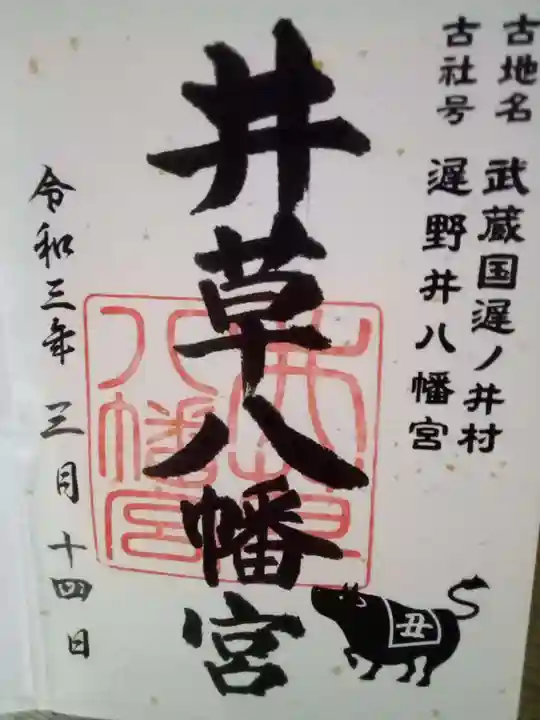 古地名 武蔵国遅ノ井村
古社号 遅野井八幡宮
井草八幡宮
令和三年三月十四日
井草八幡宮
丑